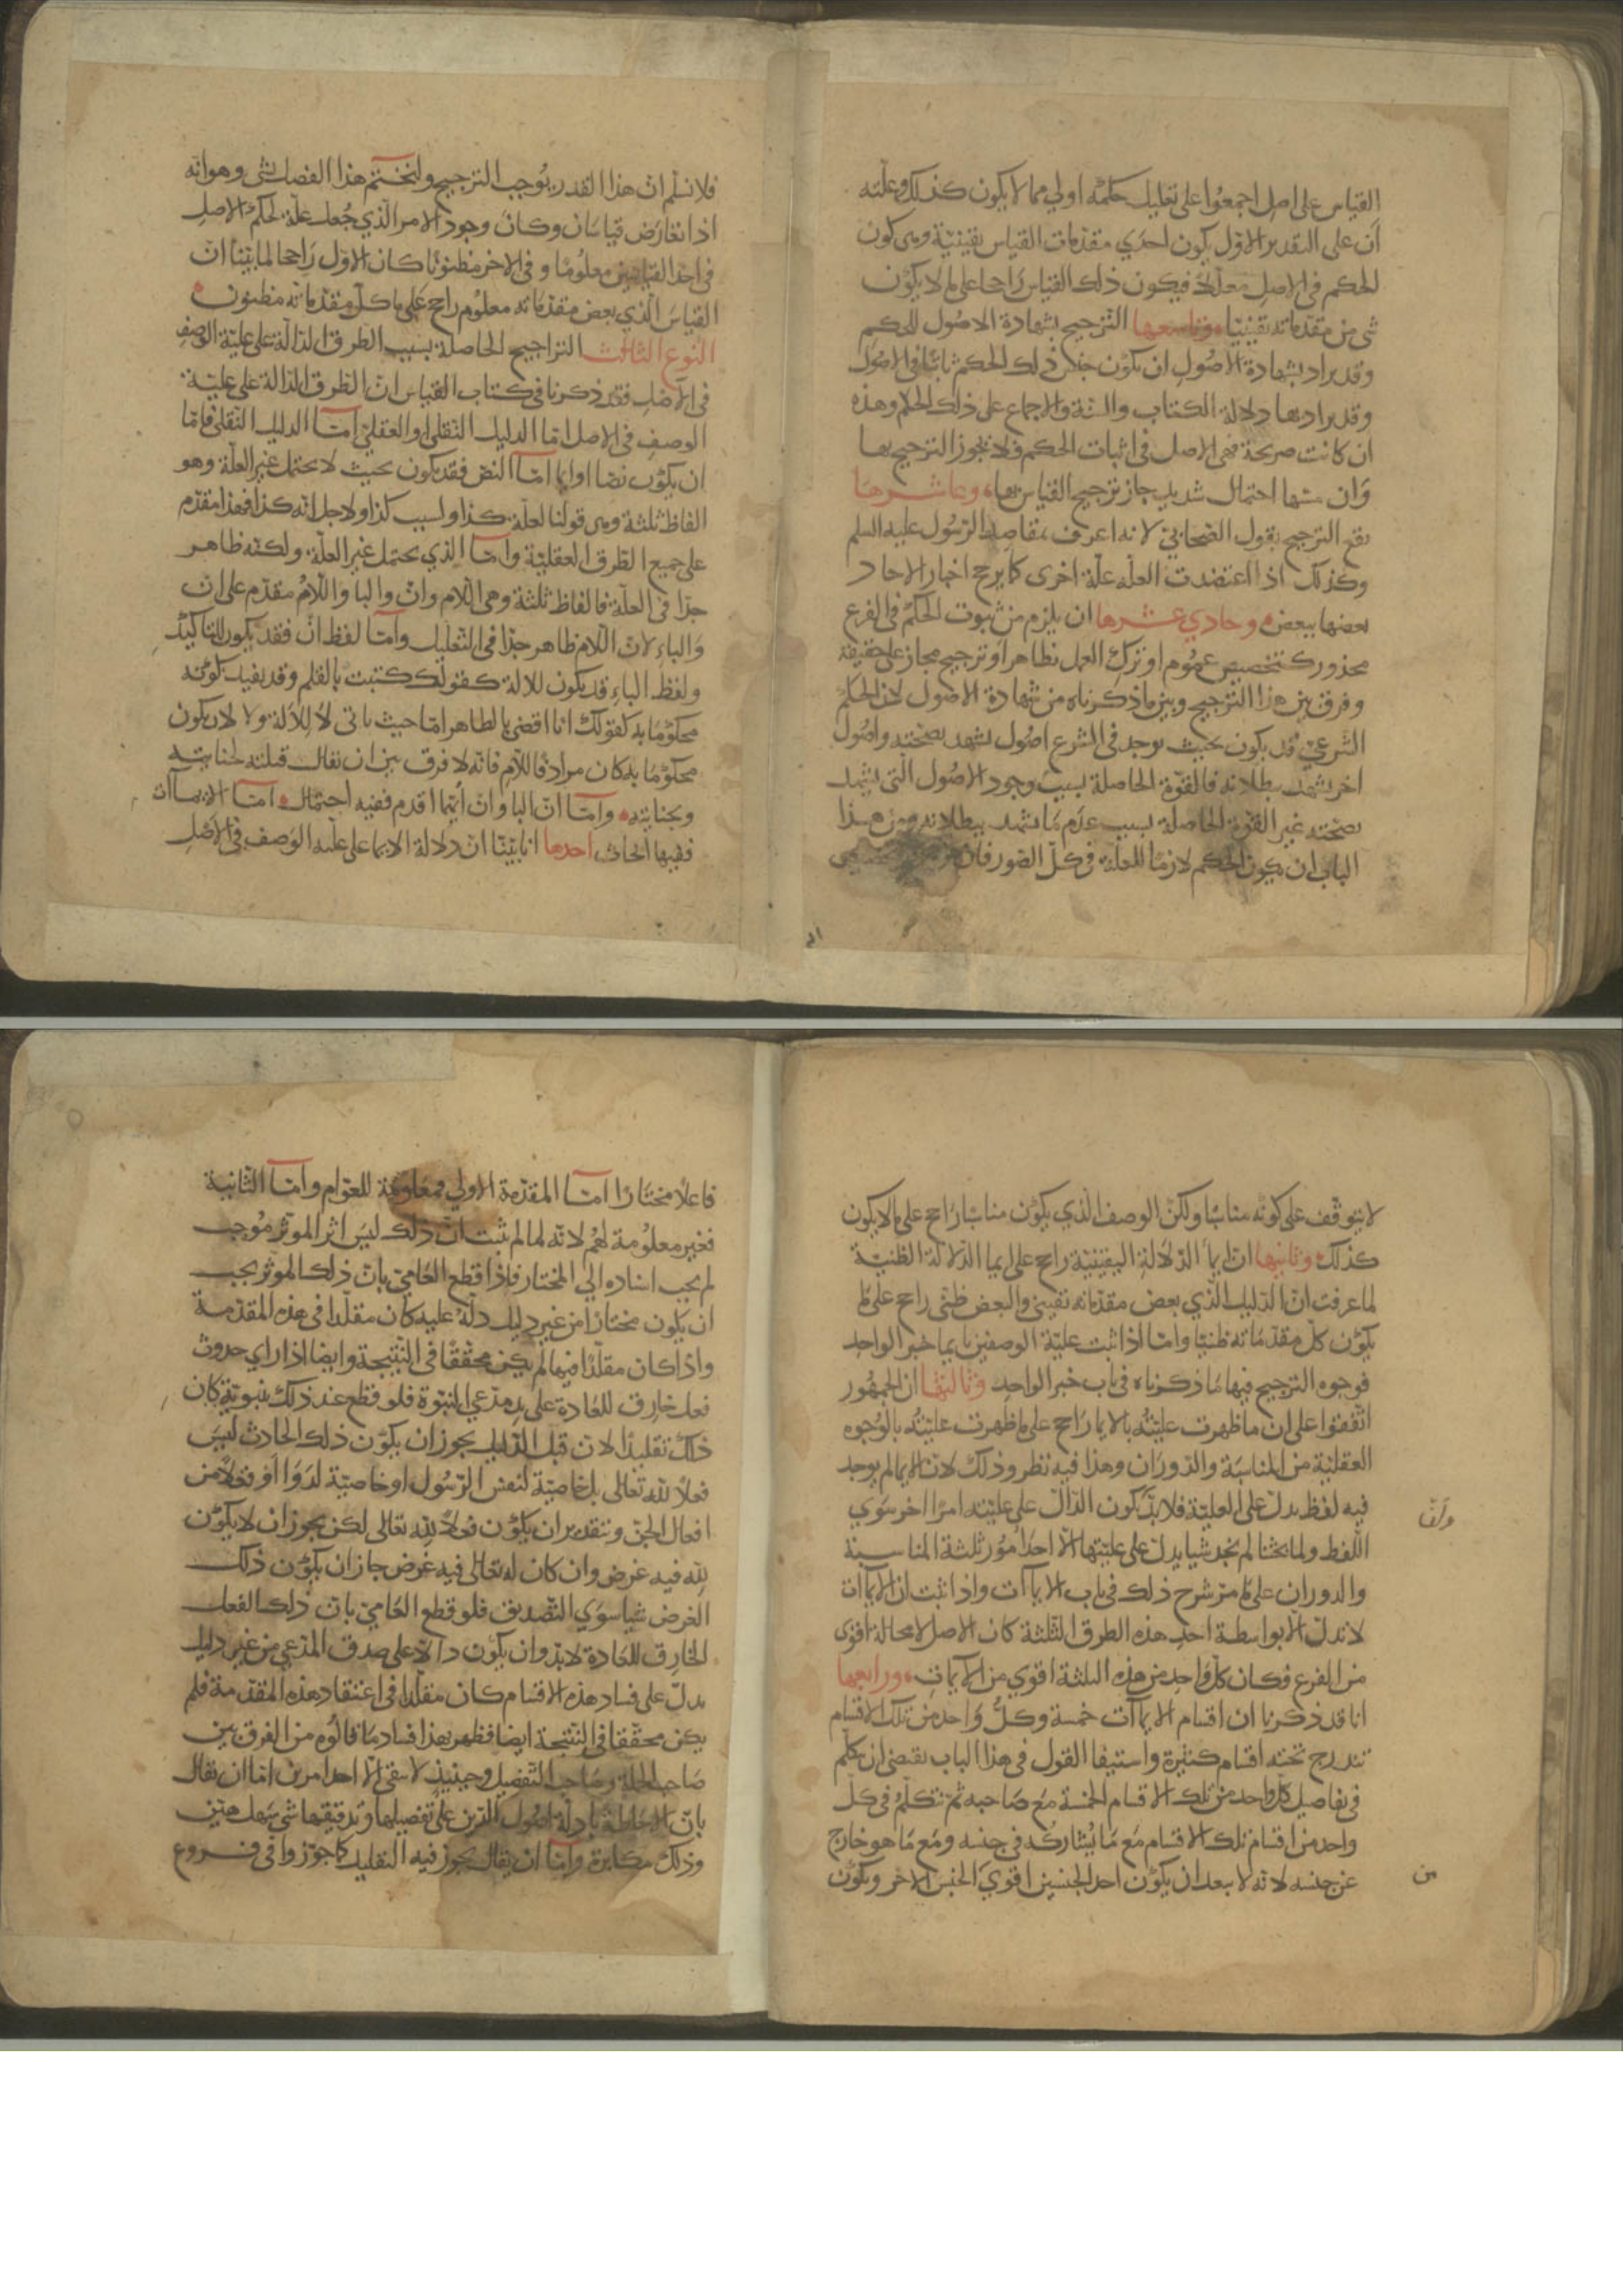 القياس على اصل اجمعوا على تعليل حكمه اولي مما لا يكون كذلك وعلته
ان على التقدير الاول يكون احدي مقدمات القياس يقينية وهي كون
الحكم في الاصل معللا فيكون ذلك القياس راجحا على ما لا يكون
شى من مقدماته يقينيا وتاسعها الترجيح بشهادة الاصول للحكم
وقد يراد بشهادة الاصول ان يكون جنس ذلك الحكم ثابتا في الاصول
وقد يراد بها دلالة الكتاب والسنة والاجماع على ذلك الحكم وهذه
ان كانت صريحة فهي الاصل في اثبات الحكم فلا يجوز الترجيح بها
وان مسها احتمال شديد جاز ترجيح القياس بها وعاشرها
يقع الترجيح بقول الصحابي لانه اعرف بمقاصد الرسول عليه السلم
وكذلك اذا اعتضدت العلة علة اخرى كما يرجح اخبار الاحاد
بعضها ببعض وحادي عشرها ان يلزم من ثبوت الحكم في الفرع
محذور كتخصيص عموم او ترك العمل بظاهر او ترجيح مجاز على حقيقة
وفرق بين هذا الترجيح وبين ما ذكرناه من شهادة الاصول لان الحكم
الشرعي قد يكون بحيث يوجد في الشرع اصول تشهد بصحته واصول
اخر تشهد ببطلانه فالقوة الحاصلة بسبب وجود الاصول التي تشهد
بصحته غير القوة الحاصلة بسبب عدم ما يشهد ببطلانه ومن هذا
الباب ان يكون الحكم لازما للعلة في كل الصور فان
فلا نسلم ان هذا القدر يوجب الترجيح ولنختم هذا الفصل بشى وهو انه
اذا تعارض قياسان وكان وجود الامر الذي جعل علة لحكم الاصل
في احد القياسين معلوما و في الاخر مظنونا كان الاول راجحا لما بينا ان
القياس الذي بعض مقدماته معلوم راجح على ما كل مقدماته مظنون
النوع الثالث التراجيح الحاصلة بسبب الطرق الدالة على علية الوصف
في الاصل فقد ذكرنا في كتاب القياس ان الطرق الدالة على علية
الوصف في الاصل اما الدليل النقلي او العقلي اما الدليل النقلي فاما
ان يكون نصا او ايما اما النص فقد يكون بحيث لا يحتمل غير العلة وهو
الفاظ ثلثة وهي قولنا لعلة كذا او لسبب كذا او لاجل انه كذا فهذا مقدم
على جميع الطرق العقلية واما الذي يحتمل غير العلة ولكنه ظاهر
جدا في العلة فالفاظ ثلثة وهي اللام وان والبا واللام مقدم على ان
والباء لان اللام ظاهر جدا في التعليل واما لفظ ان فقد يكون للتاكيد
ولفظ الباء قد يكون للالة كقولك كتبت بالقلم وقد يفيد كونه
محكوما به كقولك انا اقضي بالظاهر اما حيث ياتي لا للالة ولا لان يكون
محكوما به كان مرادفا للام فانه لا فرق بين ان يقال قتلته لجنايته
وبجنايته واما ان البا وان ايهما اقدم ففيه احتمال اما الايماآت
ففيها ابحاث احدها انا بينا ان دلالة الايما على علية الوصف في الاصل
لا يتوقف على كونه مناسبا ولكن الوصف الذي يكون مناسبا راجح على ما لا يكون
كذلك وثانيها ان ايما الدلالة اليقينية راجح على ايما الدلالة الظنية
لما عرفت ان الدليل الذي بعض مقدماته يقيني والبعض ظني راجح على ما
يكون كل مقدماته ظنيا واما اذا ثبت علية الوصفين بايما خبر الواحد
فوجوه الترجيح فيها ما ذكرناه في باب خبر الواحد وثالثها ان الجمهور
اتفقوا على ان ما ظهرت عليته بالايما راجح على ما ظهرت عليته بالوجوه
العقلية من المناسبة والدوران وهذا فيه نظر وذلك لان الايما لم يوجد
فيه لفظ يدل على العلية فلا بد يكون الدال على عليته امرا اخر سوي
اللفظ ولما بحثنا لم نجد شيا يدل على عليتها الا احد امور ثلثة المناسبة
والدوران على ما مر شرح ذلك في باب الايماآت واذا ثبت ان الايماآت
لا تدل الا بواسطة احد هذه الطرق الثلثة كان الاصل لا محالة اقوى
من الفرع فكان كل واحد من هذه الثلثة اقوي من الايماآت ورابعها
انا قد ذكرنا ان اقسام الايماآت خمسة وكل واحد من تلك الاقسام
تندرج تحته اقسام كثيرة واستيفا القول في هذا الباب يقتضي ان نتكلم
في تفاصيل كل واحد من تلك الاقسام الخمسة مع صاحبه ثم نتكلم في كل
واحد من اقسام تلك الاقسام مع ما يشاركه في جنسه ومع ما هو خارج
عن جنسه لانه لا يبعد ان يكون احد الجنسين اقوي الجنس الاخر ويكون
من
فاعلا مختارا اما المقدمة الاولي فمعلومة للعوام واما الثانية
فغير معلومة لهم لانه لما لم يثبت ان ذلك ليس اثر الموثر موجب
لم يجب اسناده الي المختار فاذا قطع العامي بان ذلك الموثر يجب
ان يكون مختارا من غير دليل دله عليه كان مقلدا في هذه المقدمة
واذا كان مقلدا فيها لم يكن محققا في النتيجة وايضا اذا راي حدوث
فعل خارق للعادة على يد مدعي النبوة فلو قطع عند ذلك بنبوته كان
ذلك تقليدا لان قبل الدليل يجوز ان يكون ذلك الحادث ليس
فعلا لله تعالى بل خاصية لنفس الرسول او خاصية لدوا او فعلا من
افعال الجن وبتقدير ان يكون فعلا لله تعالى لكن يجوز ان لا يكون
لله فيه غرض وان كان له تعالى فيه غرض جاز ان يكون ذلك
الغرض شيا سوي التصديق فلو قطع العامي بان ذلك الفعل
الخارق للعادة لا بد وان يكون دالا على صدق المدعي من غير دليل
يدل على فساد هذه الاقسام كان مقلدا في اعتقاد هذه المقدمة فلم
يكن محققا في النتيجة ايضا فظهر بهذا فساد ما قالوه من الفرق بين
صاحب الجملة وصاحب التفصيل وحينيذ لا يبقى الا احد امرين اما ان يقال
بان الاحاطة بادلة اصول الدين على تفصيلها وتدقيقها شى سهل هين
وذلك مكابرة واما ان يقال يجوز فيه التقليد كما جوزوا في فروع